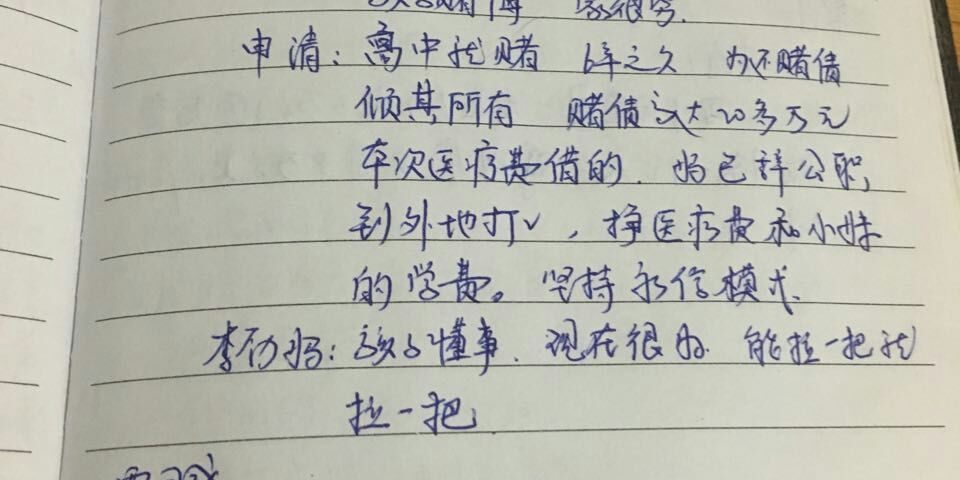 孩子赌博 家很穷.
申请:高中就赌 6年之久 为还赌债
倾其所有 赌债达20多万元
本次医疗费借的. 妈已辞公职
到外地打工,挣医疗费和小妹
的学费。坚持永信模式.
妈:孩子懂事. 现在很 能拉一把就
拉一把